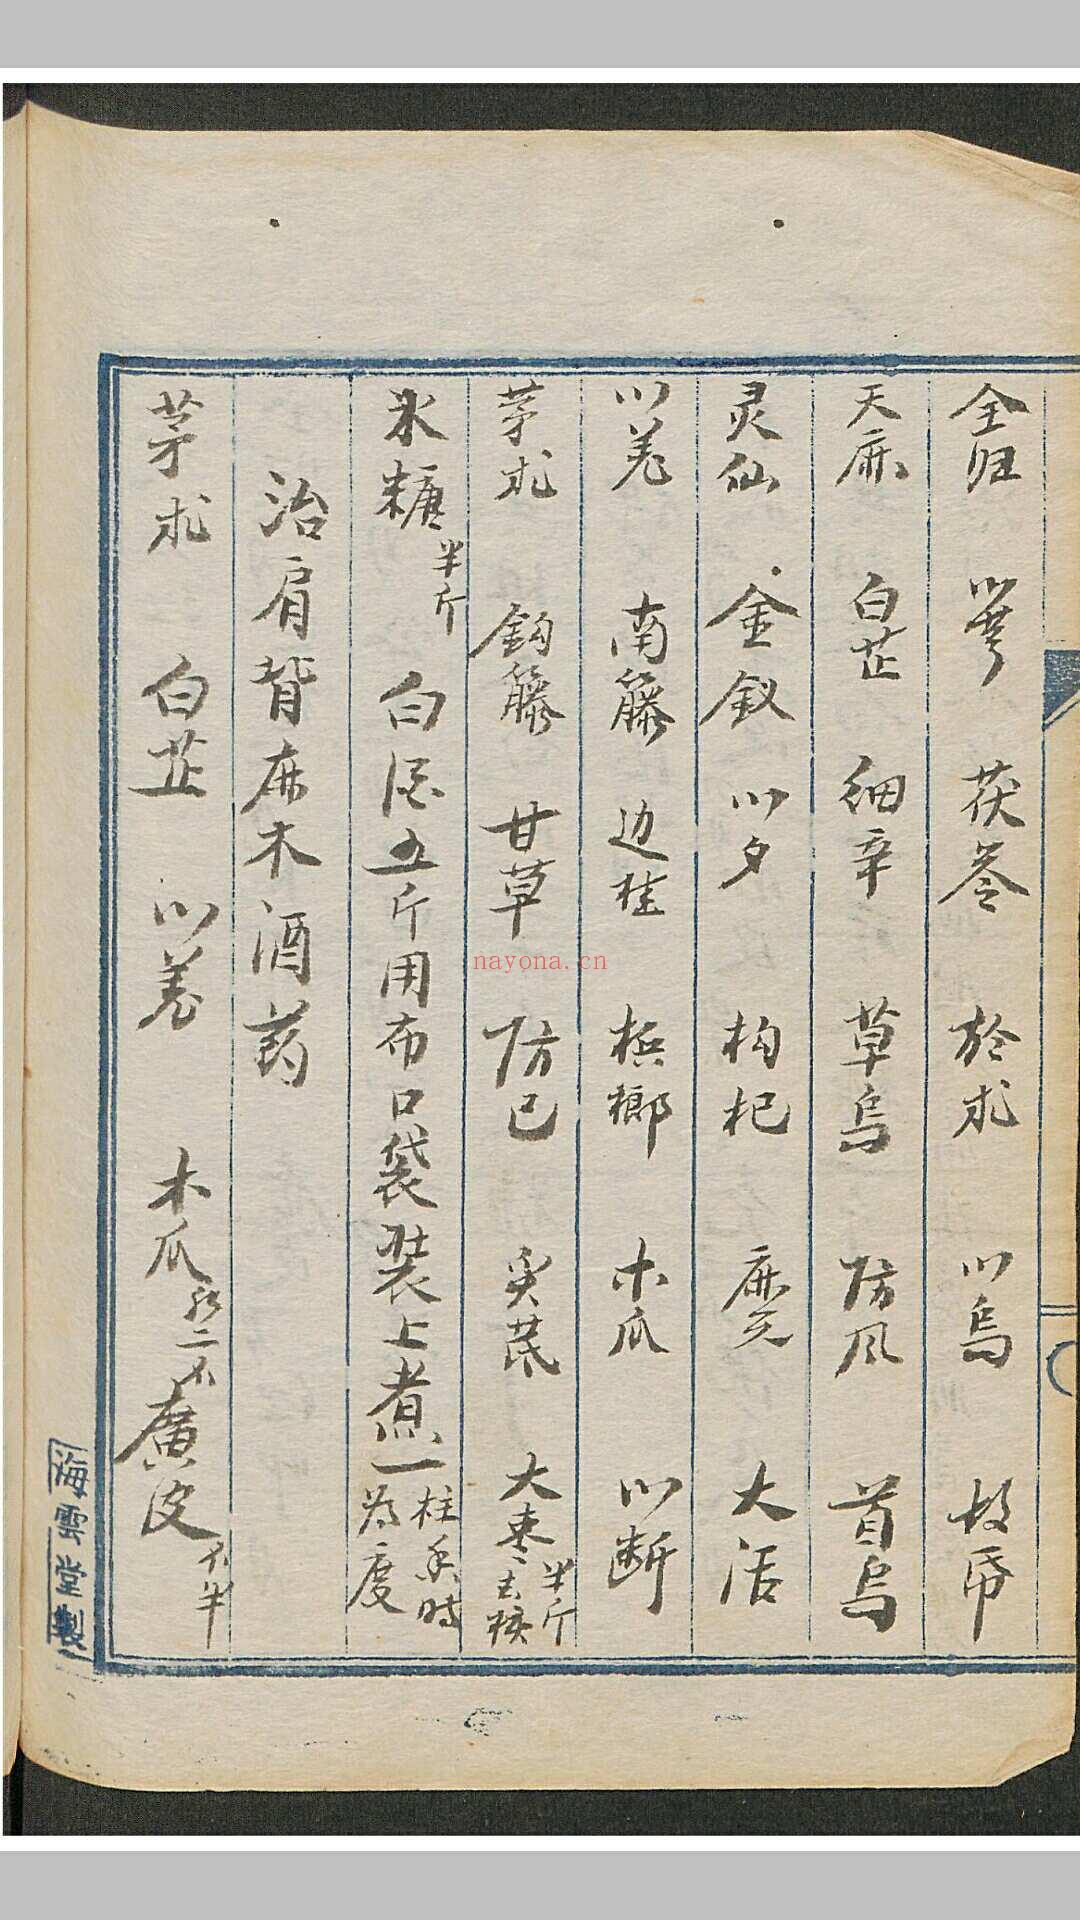 全归 川芎 茯苓 於朮 川烏 故帋
天麻 白芷 细辛 草烏 防风 首烏
灵仙 金釵 川夕 枸杞 鹿天 大活
川羌 南籐 边桂 槟榔 木瓜 川断
茅朮 鈎籐 甘草 防已 炙芪 大枣 半斤 去核
氷糖 半斤 白酒五斤用布口袋装上煮一柱香時为度
治肩背麻木酒药
茅朮 白芷 川羌 木瓜 各二个 廣皮 个半
海雲堂製
nayona.cn